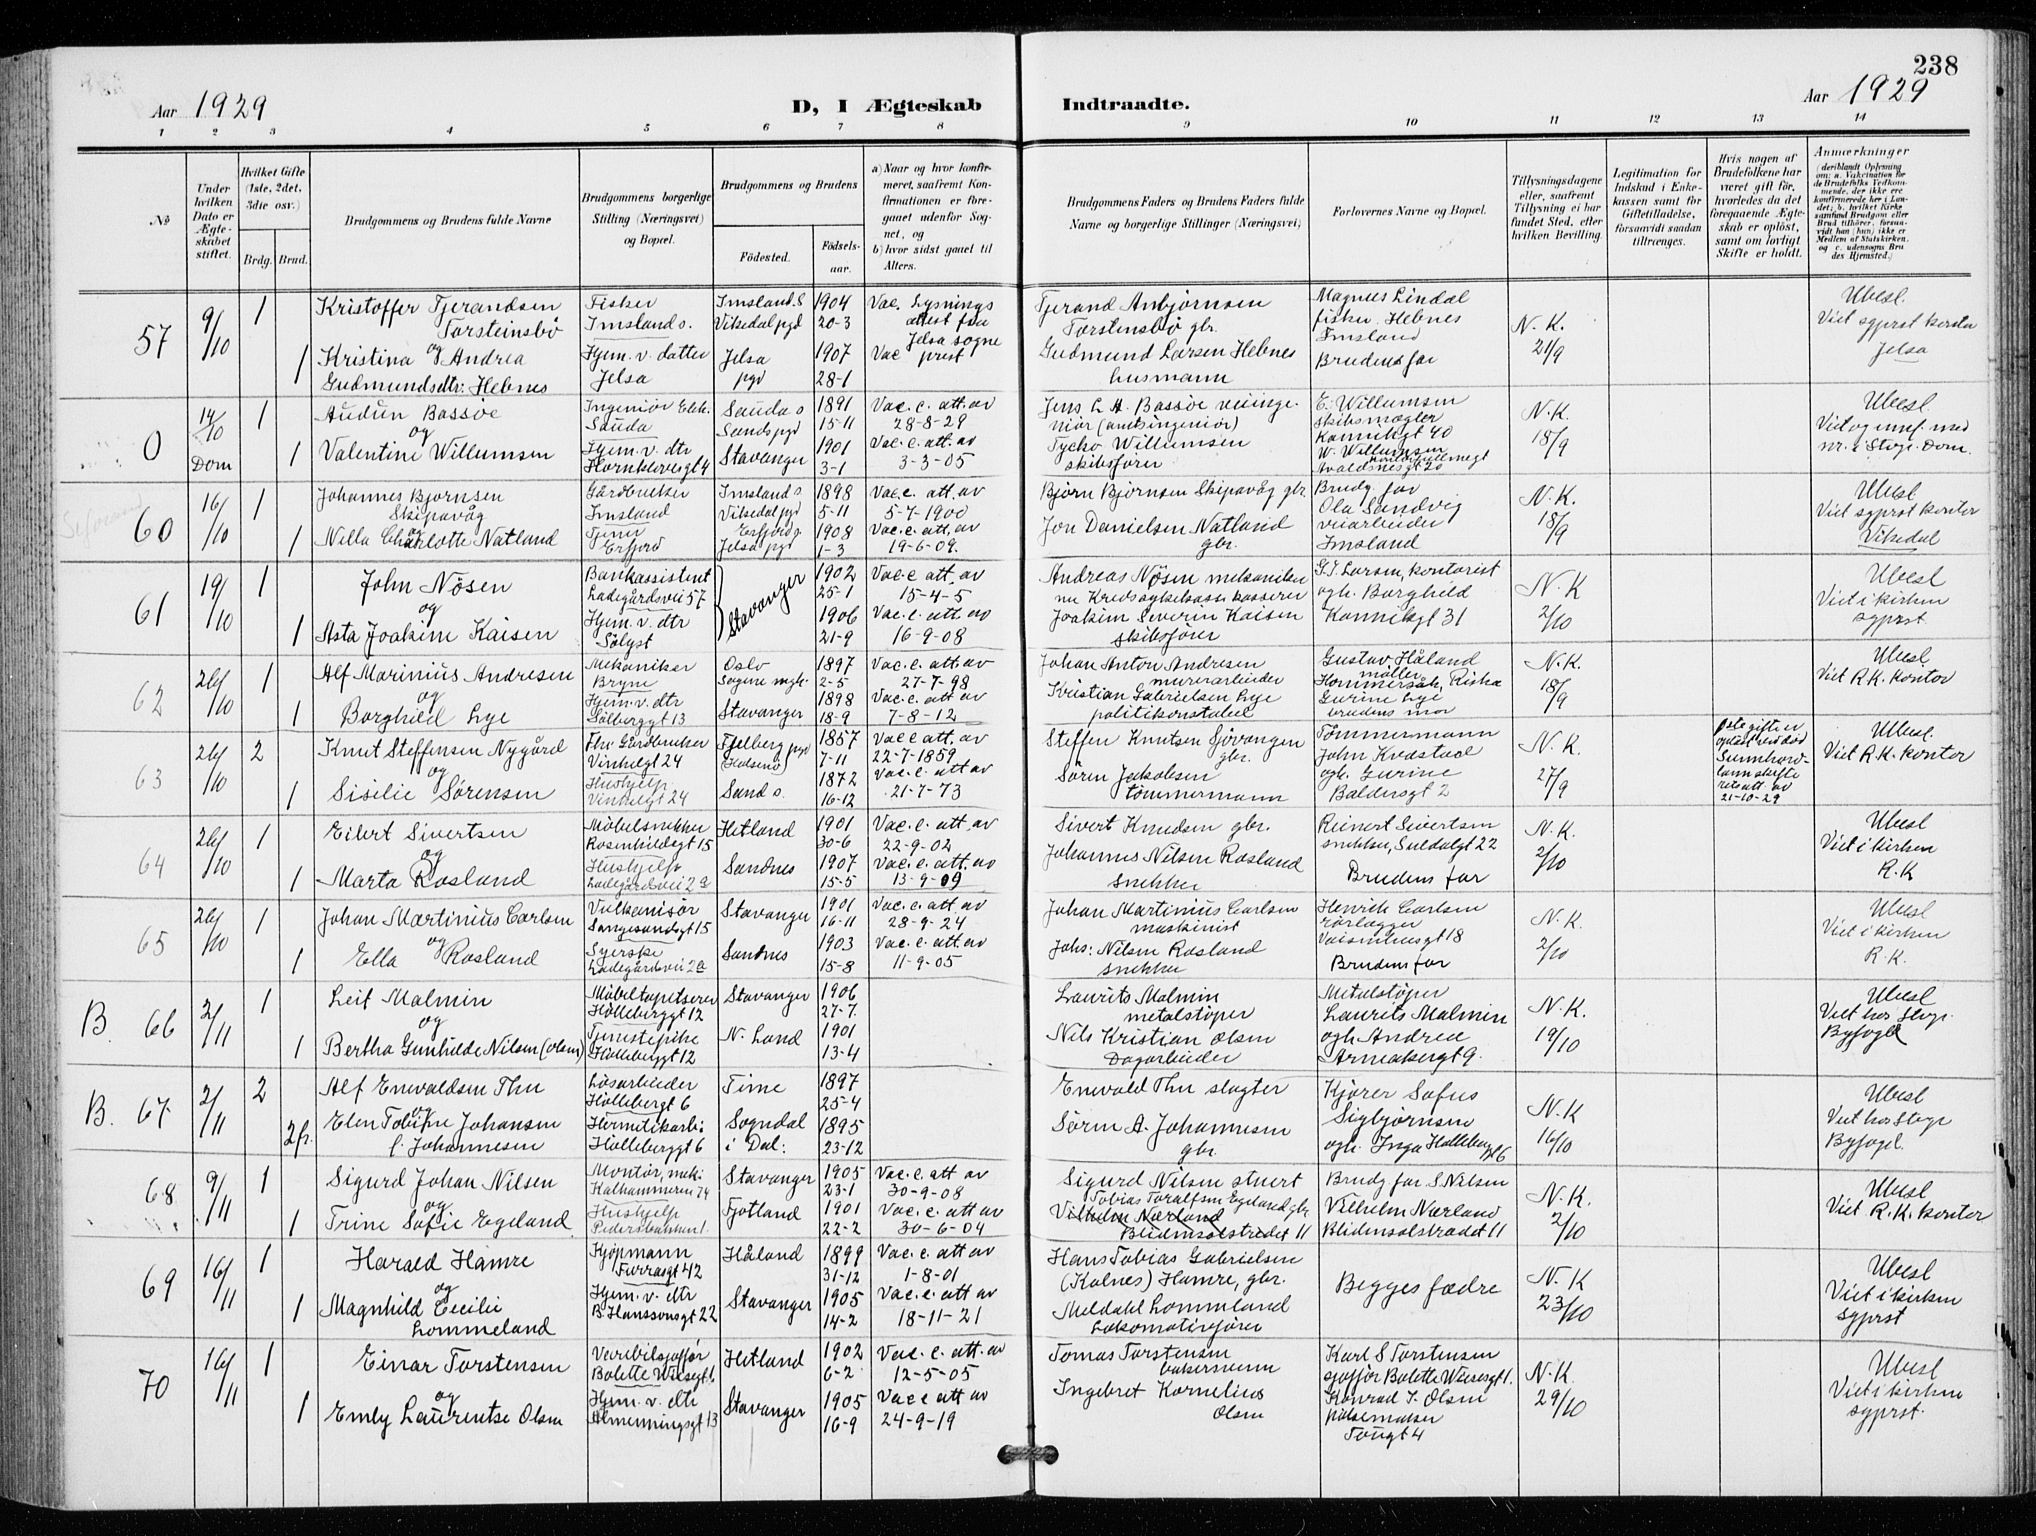 238
Aar 1929
D, I Ægteskab
Indtraadte.
Aar 1929
1 2 3 4 5 6 7 8 9 10 11 12 13 14
No
Under hvilken Dato er Ægteskabet stiftet.
Hvilket Gifte (1ste, 2det, 3die osv.)
Brdg. Brud.
Brudgommens og Brudens fulde Navne
Brudgommens borgerlige Stilling (Næringsvei) og Bopæl.
Brudgommens og Brudens
Födested.
Födselsaar.
a) Naar og hvor konfirmeret, saafremt Konfirmationen er foregaaet udenfor Sognet, og
b) hvor sidst gaaet til Alters.
Brudgommens Faders og Brudens Faders fulde Navne og borgerlige Stillinger (Næringsvei)
Forlovernes Navne og Bopæl.
Tillysningsdagene eller, saafremt Tillysning ei har fundet Sted, efter hvilken Bevilling.
Legitimation for Indskud i Enkekassen samt for Giftetilladelse, forsaavidt saadan tiltrænges.
Hvis nogen af Brudefolkene har været gift før, hvorledes da det foregaaende Ægteskab er oplöst, samt om lovligt Skifte er holdt.
Anmærkninger
(deriblandt Oplysning om: a. Vakcination for de Brudefolks Vedkommende, der ikke ere konfirmerede her i Landet; b. hvilket Kirkesamfund Brudgom eller Brud tilhörer, forsaavidt han (hun) ikke er Medlem af Statskirken, og c. udensogns Brudes Hjemsted.)
57
9/10
1
Kristoffer Tjerandsen Torsteinsbö
og
1 Kristina Andrea Gudmundsdtr. Hebnes
Fisker
Imsland s.
Hjem. v. datter
Jelsa
Imsland. s
Vikedal pgd
Jelsa pgd
1904
20-3
1907
28-1
Vac. Lysnings attest fra Jelsa sogneprest
Vac
Tjerand Anbjørnsen
Torstensbø gbr.
Gudmund Larsen Hebnes
husmann
Magnus Lindal
fisker. Hebnes
Imsland
Brudens far
N. K.
21/9
Ubesl.
Viet sgprst kontor
Jelsa
0
14/10
Dom
1
Audun Bassøe
og
1 Valentine Willumsen
Ingeniør Elek.
Sauda
Hjem. v. dtr
Hornklovesgt 4
Sauda s
Sands pgd
Stavanger
1891
15-11
1901
3-1
Vac. c. att. av
28-8-29
Vac. c. att. av
3-3-05
Jens L A. Bassøe veiingeniør (amtsingeniør)
Tycho Willumsen
skibsfører
E. Willumsen
skibsmægler
Kannikgt 40
W. Willumsen
Avaldsnesgt 20
N. K.
18/9
Ubesl.
Viet og innf. med
nr. i Stvgr. Dom.
60
16/10
1
Johannes Bjørnsen
Skipavåg
og
1 Nilla Charlotte Natland
Gårdbruker
Imsland
Tjener
Erfjord
Imsland s.
Vikedal pgd
Erfjord s.
Jelsa pgd
1898
5-11
1908
1-3
Vac. c. att. av
5-7-1900
Vac. c. att. av
19-6-09.
Bjørn Bjørnsen Skipavåg gbr.
Jon Danielsen Natland
gbr.
Brudg. far
Ola Sandvig
veiarbeider
Imsland
N. K.
18/9
Ubesl
Viet sgprst kontor
Vikedal
61
19/10
1
John Nøsen
og
1 Asta Joakime Kaisen
Bankassistent
Ladegårdsvei 57
Hjem. v. dtr
Sólyst
Stavanger
1902
25-1
1906
21-9
Vac. c att. av
15-4-5
Vac. c. att. av
16-9-08
Andreas Nøsen mekaniker
nu Kredssykekasse kasserer
Joakim Severin Kaisen
skibsfører
G. T. Larsen, kontorist
ogh. Borghild
Kannikgt 31
N. K
2/10
Ubesl
Viet i kirken
sgprst.
62
26/10
1
Alf Marinius Andresen
og
1 Borghild Lye
Mekaniker
Bryne
Hjem. v. dtr
Sólberggt 13
Oslo
Sagene mgh.
Stavanger
1897
2-5
1898
18-9
Vac. c. att. av
27-7-98
Vac. c. att av
7-8-12
Johan Anton Andresen
murerarbeider
Kristian Gabrielsen Lye
politikonstabel
Gustav Håland
møller
Hommersåk, Riska
Gurine Lye
brudens mor
N. K.
18/9
Ubesl
Viet R. K. kontor
63
26/10
2
Knut Steffensen Nygård
og
1 Sisilie Sørensen
Fhv. Gårdbruker
Vinkelgt 24
Hushjelp
Vinkelgt 24
Fjelberg pgd
(Halsenø)
Sand s.
1857
7-11
1872
16-12
Vac c att. av
22-7-1859
Vac. c. att av
21-7-73
Steffen Knutsen Sjovangen
gbr.
Søren Jakobsen
tømmermann
Tømmermann
John Kvastad
ogh. Gurine
Baldersgt 2
N. K.
27/9
1ste gifte er opløst ved død Sunnhordland skifterets att. av 21-10-29
Ubesl.
Viet R. K. kontor
64
26/10
1
Eilert Sivertsen
og
1 Marta Rosland
Möbelsnekker
Rosenkildegt 15
Hushjelp
Ladegårdsvei 2a
Hetland
Sandnes
1901
30-6
1907
15-5
Vac. c. att. av
22-9-02
Vac. c. att. av
13-9-09
Sivert Knudsen gbr.
Johannes Nilsen Rosland
snekker
Reinert Sivertsen
snekker, Suldalgt 22
Brudens far
N. K.
2/10
Ubesl
Viet i kirken
R. K
65
26/10
1
Johan Martinius Carlsen
og
1 Ella Rosland
Vulkanisør
Langesundsgt 15
Syerske
Ladegårdsvei 2a
Stavanger
Sandnes
1901
16-11
1903
15-8
Vac. c. att av
28-9-24
Vac. c. att. av
11-9-05
Johan Martinius Carlsen
maskinist
Johs: Nilsen Rosland
snekker
Henrik Carlsen
rørlegger
Vaisenhusgt 18
Brudens far
N. K.
2/10
Ubesl
Viet i kirken
R. K.
B. 66
2/11
1
Leif Malmin
og
1 Bertha Gunhilde Nilsen (Olsen)
Möbeltapetserer
Hólleberggt 12
Tjenestepike
Hólleberggt 12
Stavanger
N. Land
1906
27-7.
1901
13-4
Laurits Malmin
metalstøper
Nils Kristian Olsen
Dagarbeider
Metalstøper
Laurits Malmin
ogh. Andrea
Arneabergt 9.
N. K.
19/10
Ubesl
Viet hos Stvgr.
Byfogd
B. 67
2/11
2
Alf Enevaldsen Thu
og
2 fr. Elen Tobine Johansen
f. Johannesen
Løsarbeider
Hóllebergt 6
Hermetikarb:
Hólleberggt 6
Time
Sogndal
i Dal:
1897
25-4
1895
23-12
Enevald Thu slagter
Søren A. Johannesen
gbr.
Kjører Sofus
Sigbjørnsen
ogh. Inga Holleberggt 6
N. K
16/10
Ubesl
Viet hos Stvgr
Byfogd.
68
9/11
1
Sigurd Johan Nilsen
og
1 Trine Sofie Egeland
Montør, mek.
Kalhammeren 74
Hushjelp
Pedersbakken 1
Stavanger
Fjotland
1905
23-1
1901
22-2
Vac. c. att av
30-9-08
Vac. c. att av
30-6-04
Sigurd Nilsen stuert
Tobias Toralfsen Egeland, gbr.
Vilhelm Nærland
Blidensolstredet 11
Brudg. far. S. Nilsen
Vilhelm Nærland
Blidensolstrædet 11
N. K.
2/10
Ubesl
Viet R. K. kontor
69
16/11
1
Harald Hamre
og
1 Magnhild Cecilie
Lommeland
Kjøpmann
Furrasgt 42
Hjem. v. dtr
B. Hanssonsgt 22
Håland
Stavanger
1899
31-12
1905
14-2
Vac. c. att av
1-8-01
Vac. c. att av
18-11-21
Hans Tobias Gabrielsen
(Kolnes) Hamre, gbr.
Meldahl Lommland
Lokomotivfører
Begges fædre
N. K
23/10
Ubesl
Viet i kirken
sgprst
70
16/11
1
Einar Torstensen
og
1 Emly Laurentse Olsen
Varebilsjaffør
Bolette Wiesegt 6
Hjem. v. dtr
Almenningsgt 13
Hetland
Stavanger
1902
6-2
1905
16-9
Vac. c. att. av
12-5-05
Vac c att av
24-9-19
Tomas Torstensen
bakermann
Ingebret Kornelius
Olsen
Karl S Torstensen
sjaffør Bolette Wiesegt 1.
Konrad I. Olsen
pølsemaker
Tougt 4
N. K.
29/10
Ubesl
Viet i kirken
sgprst.